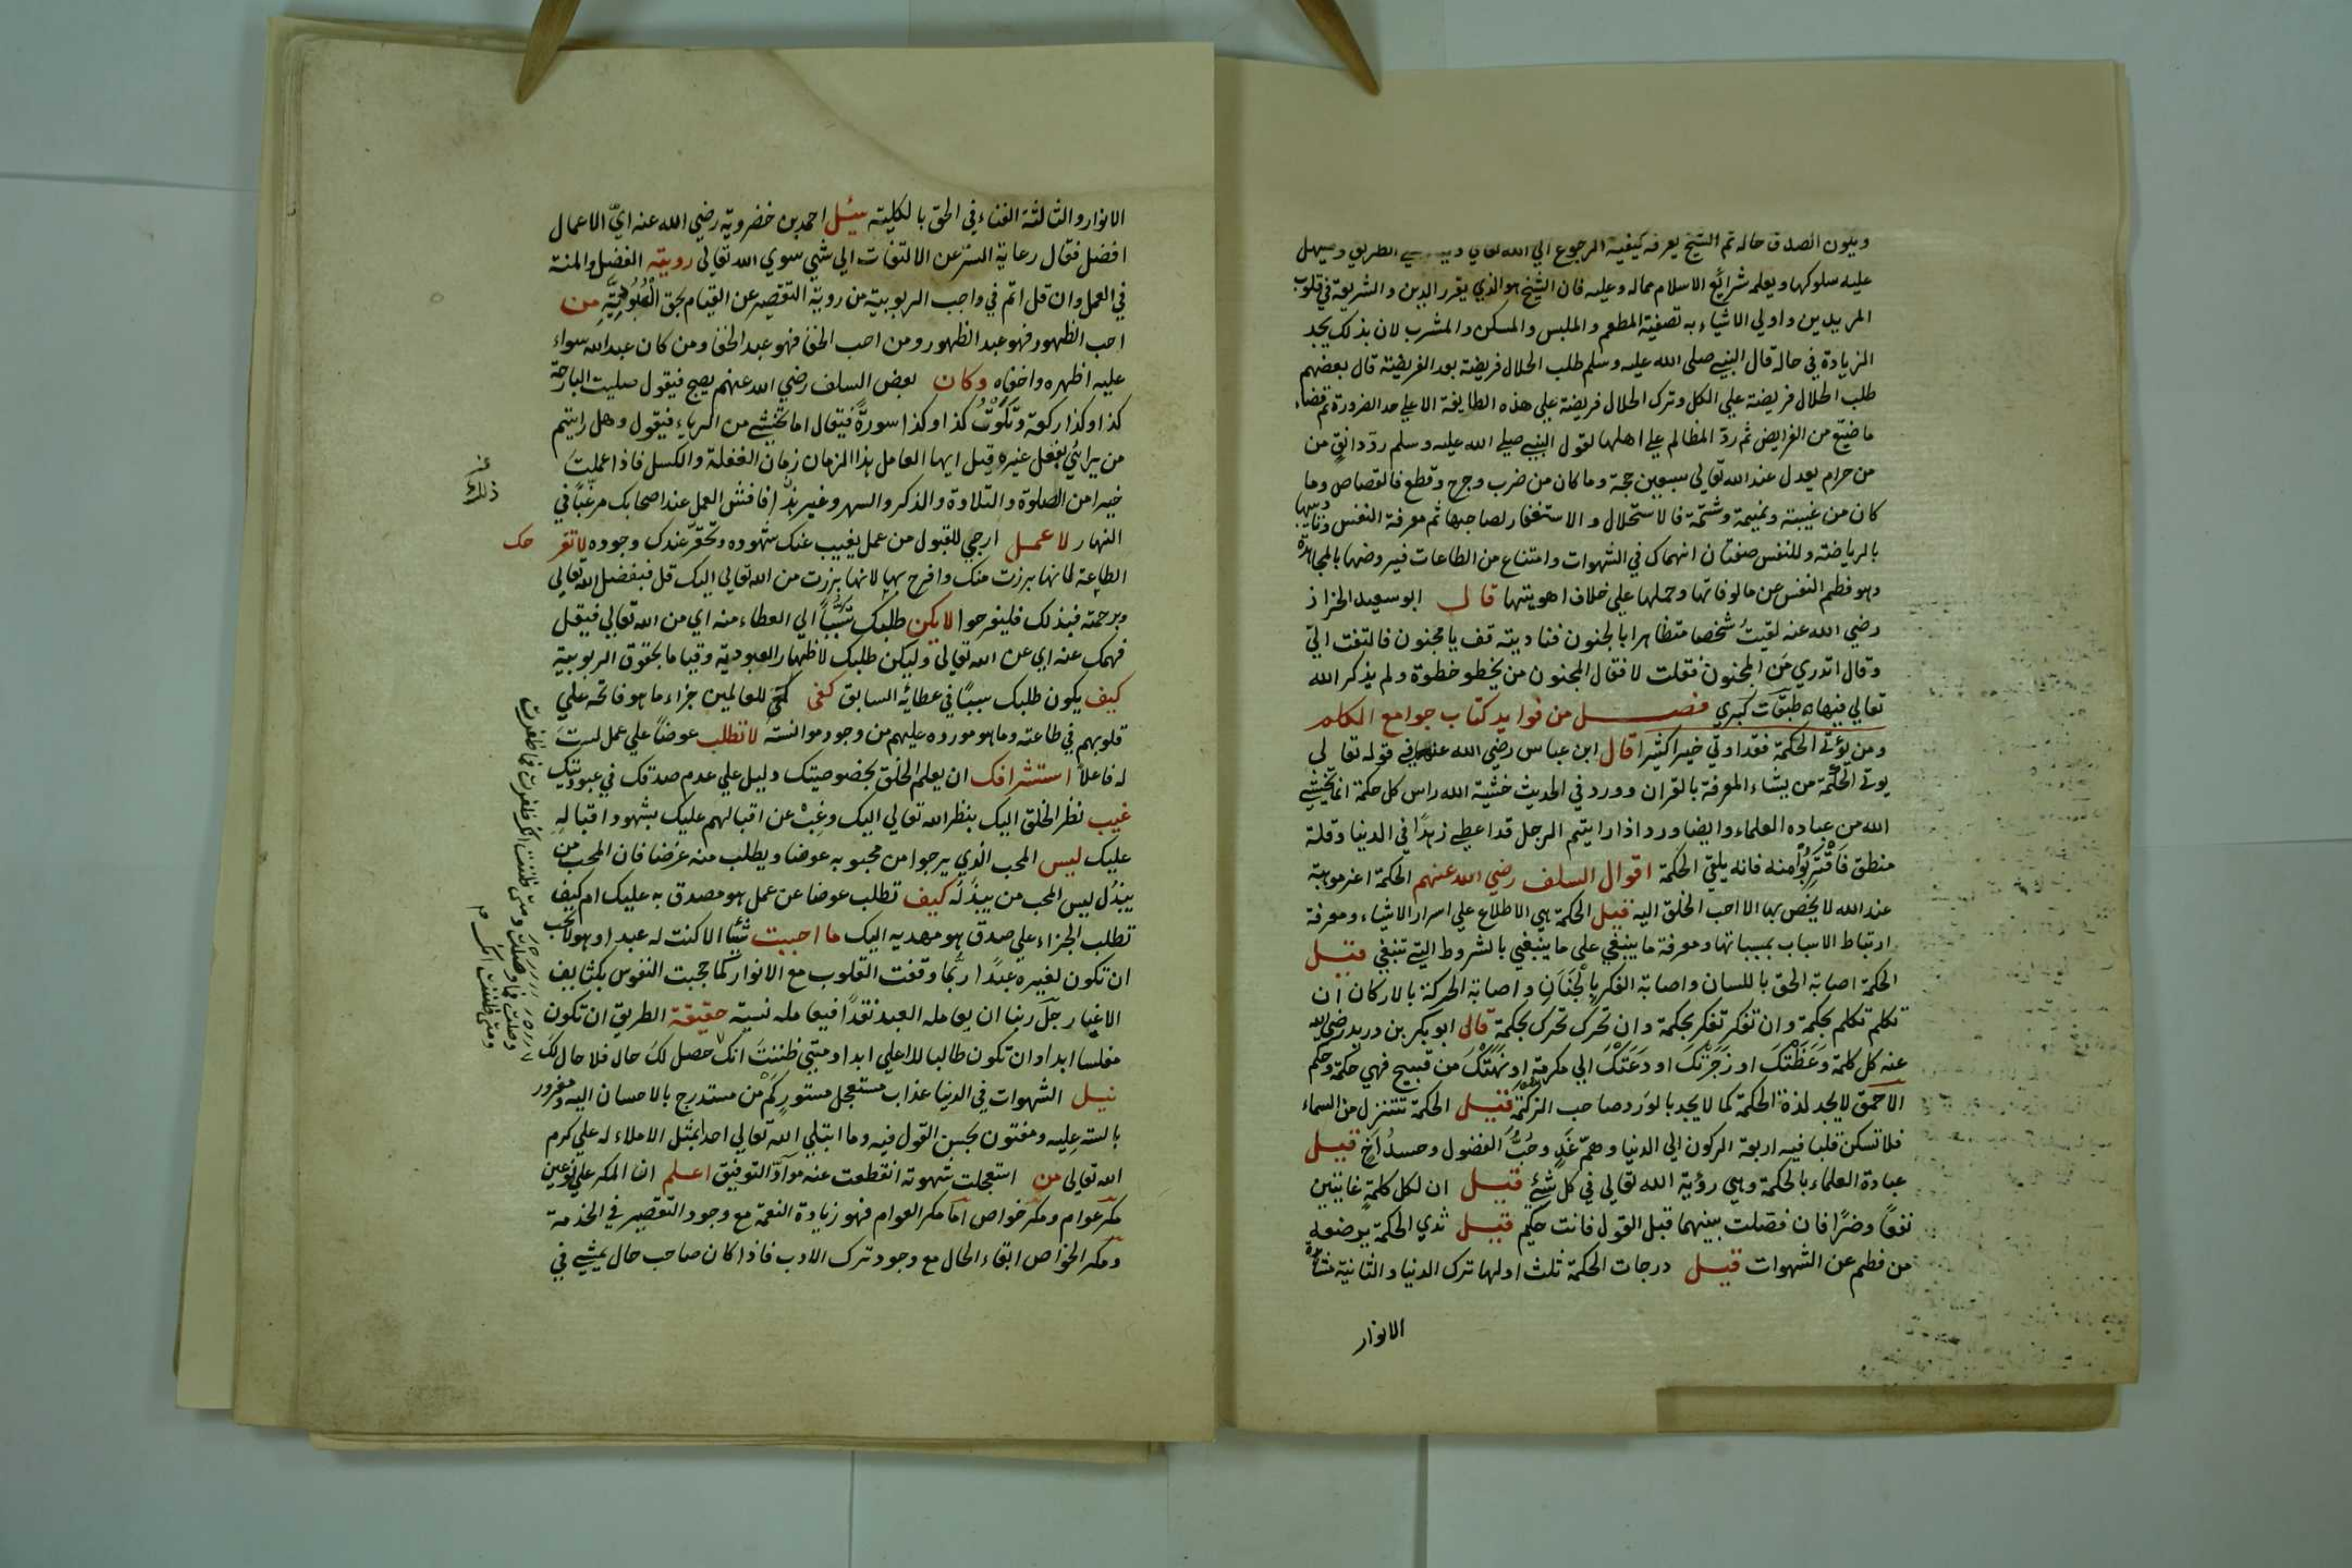 ويكون الصدق حاله ثم الشيخ يعرفه كيفية الرجوع الي الله تعالي الطريق وسيهل
عليه سلوكها ويعلمه شرائع الاسلام ماله وعليه فان الشيخ هو الذي يقرر الدين والشريعة في قلوب
المريدين واولي الاشياء به تصفية المطعم والملبس والمسكن والمشرب لان بذلك يجد
الزيادة في حاله قال النبي صلى الله عليه وسلم طلب الحلال فريضة بعد الفريضة قال بعضهم
طلب الحلال فريضة علي الكل وترك الحلال فريضة علي هذه الطايفة الا علي حد الضرورة ثم قضاء
ما ضيّع من الفرايض ثم ردّ المظالم علي اهلها لقول النبي صلي الله عليه وسلم ردّ دانق من
من حرام يعدل عند الله تعالي سبعين حجة وما كان من ضرب وجرح وقطع فالقصاص وما
كان من غيبة ونميمة وشتمة فالاستحلال والاستغفار لصاحبها ثم معرفة النفس وتأديبها
بالرياضة وللنفس صفتان انهماك في الشهوات وامتناع من الطاعات فيروضها بالمجاهدة
وهو فطم النفس عن مالوفاتها وحملها علي خلاف اهويتها قال ابو سعيد الخراز
رضي الله عنه لقيتُ شخصا متظاهرا بالجنون فناديته قف يا مجنون فالتفت اليّ
وقال اتدري مَن المجنون فقلت لا فقال المجنون من يخطو خطوة ولم يذكر الله
تعالي فيها طبقات كبري فصل من فوايد كتاب جوامع الكلم
ومن يؤتي الحكمة فقد اوتي خيرا كثيرا قال ابن عباس رضي الله عنهما في قوله تعالي
يوتي الحكمة من يشاء المعرفة بالقران وورد في الحديث خشية الله راس كل حكمة انما يخشي
الله من عباده العلماء وايضا ورد اذا رايتم الرجل قد اعطي زهدًا في الدنيا وقلة
منطق فَاقْتَرِبُوْا منه فانه يلقي الحكمة اقوال السلف رضي الله عنهم الحكمة اعز موهبة
عند الله لا يخص بها الا احب الخلق اليه قيل الحكمة هي الاطلاع علي اسرار الاشياء ومعرفة
ارتباط الاسباب بمسبباتها ومعرفة ما ينبغي علي ما ينبغي بالشروط التي تنبغي قيل
الحكمة اصابة الحق باللسان واصابة الفكر بِالْجَنَانِ واصابة الحركة بالاركان ان
تكلم تكلم بحكمة وان تفكر تفكر بحكمة وان تحرك تحرك بحكمة قال ابو بكر بن دريد رضي الله
عنه كل كلمة وَعَظَتْكَ او زَجَرَتْكَ او دَعَتْكَ الي مكرمة او نَهَتْكَ من قبيح فهي حكمة وحكم
الاحمق لا يجد لذة الحكمة كما لا يجد بالورد صاحب الزكمة قيل الحكمة تتنزل من السماء
فلا تسكن قلبا فيه اربعة الركون الي الدنيا وهمّ غَدٍ وحُبُّ الفضول وحسدُ اخٍ قيل
عبادة العلماء بالحكمة وهي رؤية الله تعالي في كل شئ قيل ان لكل كلمة غايتين
نفعًا وضرًّا فان فصّلت بينهما قبل القول فانت حكيم قيل ثدي الحكمة يرضعه
من فطم عن الشهوات قيل درجات الحكمة ثلث اولها ترك الدنيا والثانية مشاهدة
الانوار
الانوار والثالثة الفناء في الحق بالكلية سئل احمد بن خضروية رضي الله عنه ايّ الاعمال
افضل فقال رعاية السرّ عن الالتفات الي شئ سوي الله تعالي روية الفضل والمنة
في العمل وان قل اتم في واجب الربوبية من روية التقصير عن القيام بحق الْعُبُودِيَّةِ من
احب الظهور فهو عبد الظهور ومن احب الخفا فهو عبد الخفا ومن كان عبد الله سواء
عليه اظهره واخفاه وكان بعض السلف رضي الله عنهم يصبح فيقول صليت البارحة
كذا وكذا ركعة وتَلَوْتُ كذا وكذا سورةً فيقال اما تخشي من الرياء فيقول وهل رايتم
من يرائي بفعل غيره قيل ايها العامل هذا الزمان زمان الغفلة والكسل فاذا عملت
خيرا من الصلوة والتلاوة والذكر والسهر وغير فافش العمل عند اصحابك مرغّبًا في
النهار لا عمل ارجي للقبول من عمل يغيب عنك شهوده وتحقر عندك وجوده لا تفرحك
الطاعة لانها برزت منك وافرح بها لانها برزت من الله تعالي اليك قل فبفضل الله تعالي
وبرحمته فبذلك فليفرحوا لا يكن طلبك تَسَبُّبًا الي العطاء منه اي من الله تعالي فيقل
فهمك عنه اي عن الله تعالي وليكن طلبك لاظهار العبودية وقياما بحقوق الربوبية
كيف يكون طلبك سببًا في عطائه السابق كفي للعالمين جزاء ما هو فاتحه علي
قلوبهم في طاعته وما هو مورده عليهم من وجود موانسته لا تطلب عوضًا علي عمل لستَ
له فاعلاً استشرافك ان يعلم الخلق بخصوصيتك دليل علي عدم صدقك في عبوديتك
غيب نظر الخلق اليك بنظر الله تعالي اليك وغِبْ عن اقبالهم عليك بشهود اقبالهِ
عليك ليس المحب الذي يرجوا من محبوبه عوضا ويطلب منه غرضا فان المحب من
يبذُل ليس المحب من يبذَل له كيف تطلب عوضا عن عمل هو مصدق به عليك ام كيف
تطلب الجزاء علي صدق هو مهديه اليك ما احببت شيًا الا كنت له عبدا وهو لا يحب
ان تكون لغيره عبدًا ربَّما وقفت القلوب مع الانوار كما حجبت النفوس بكثايف
الاغيار جلّ ربنا ان يعامله العبد نقدًا فيعامله نسية حقيقة الطريق ان تكون
مفلسا ابدا وان تكون طالبا للاعلي ابدا ومتي ظننتَ انك حصل لكَ حال فلا حال لكَ
نيل الشهوات في الدنيا عذاب مستعجل مستور كَمْ من مستدرج بالاحسان اليه ومغرور
بالستر عليه ومفتون بحسن القول فيه وما ابتلي الله تعالي احدا بمثل الاملاء له علي كرم
الله تعالي من استعجلت شهوته انقطعت عنه موادّ التوفيق اعلم ان المكر علي نوعين
مكر عوام ومكر خواص اما مكر العوام فهو زيادة النعمة مع وجود التقصير في الخدمة
ومكر الخواص ابقاء الحال مع وجود ترك الادب فاذا كان صاحب حال يمشي في
ذلك
ومتي ظننت انك ظفرت فما ظفرت
ومتي ظننت انك وصلت فما وصلت